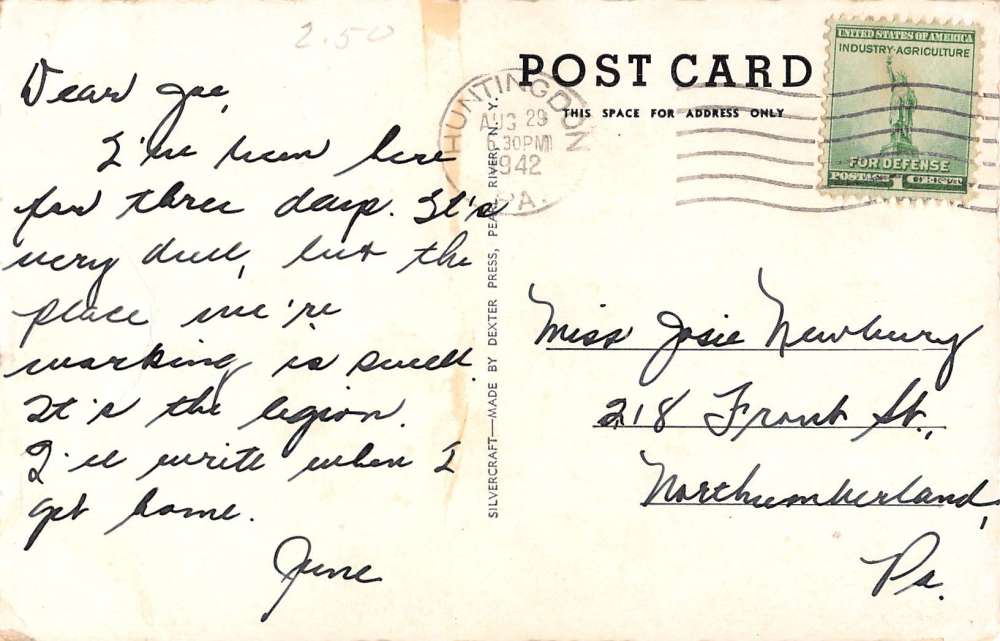 2.50
Dear Joe,
I've been here
for three days. It's
very dull, but the
place we're
working is swell.
It's the legion.
I'll write when I
get home.
June
SILVERCRAFT—MADE BY DEXTER PRESS, PEARL RIVER, N. Y.
POST CARD
THIS SPACE FOR ADDRESS ONLY
HUNTINGDON
AUG 29
6 30PM
1942
PA.
UNITED STATES OF AMERICA
INDUSTRY·AGRICULTURE
FOR DEFENSE
POSTAGE 1 CENT
Miss Josie Newbury
218 Front St.,
Northumberland,
Pa.